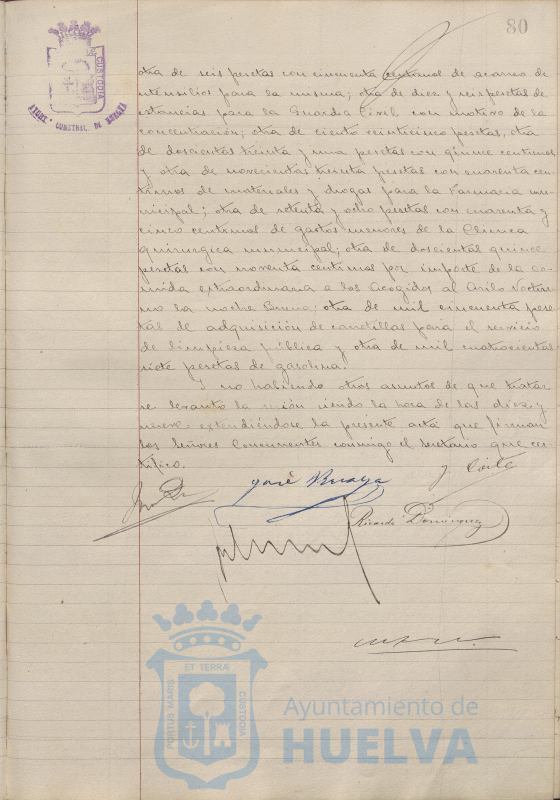 80
CUSTODIA
otra de seis pesetas con cincuenta centimos de acarreo de
utensilios para la misma; otra de diez y seis pesetas de
estancias para la Guardia Civil con motivo de la
concentración; otra de ciento veinticinco pesetas, otra
de doscientas treinta y una pesetas con quince centimos
y otra de novecientas treinta pesetas con cuarenta cen-
timos de materiales y drogas para la Farmacia mu-
nicipal; otra de setenta y ocho pesetas con cuarenta y
cinco centimos de gastos menores de la Clinica
quirurgica municipal; otra de doscientas quince
pesetas con noventa centimos por importe de la co-
mida extraordinaria a los Acogidos al Asilo Noctur-
no la noche Buena; otra de mil cincuenta pese-
tas de adquisición de canastillas para el servicio
de limpieza pública y otra de mil cuatrocientas
siete pesetas de gasolina.
Y no habiendo otros asuntos de que tratar
se levantó la sesión siendo la hora de las diez y
nueve extendiéndose la presente acta que firman
los Señores Concurrentes conmigo el Secretario que cer-
tifico.
José
Ricardo Dominguez
ET TERRÆ
PORTUS MARIS
CUSTODIA
Ayuntamiento de
HUELVA